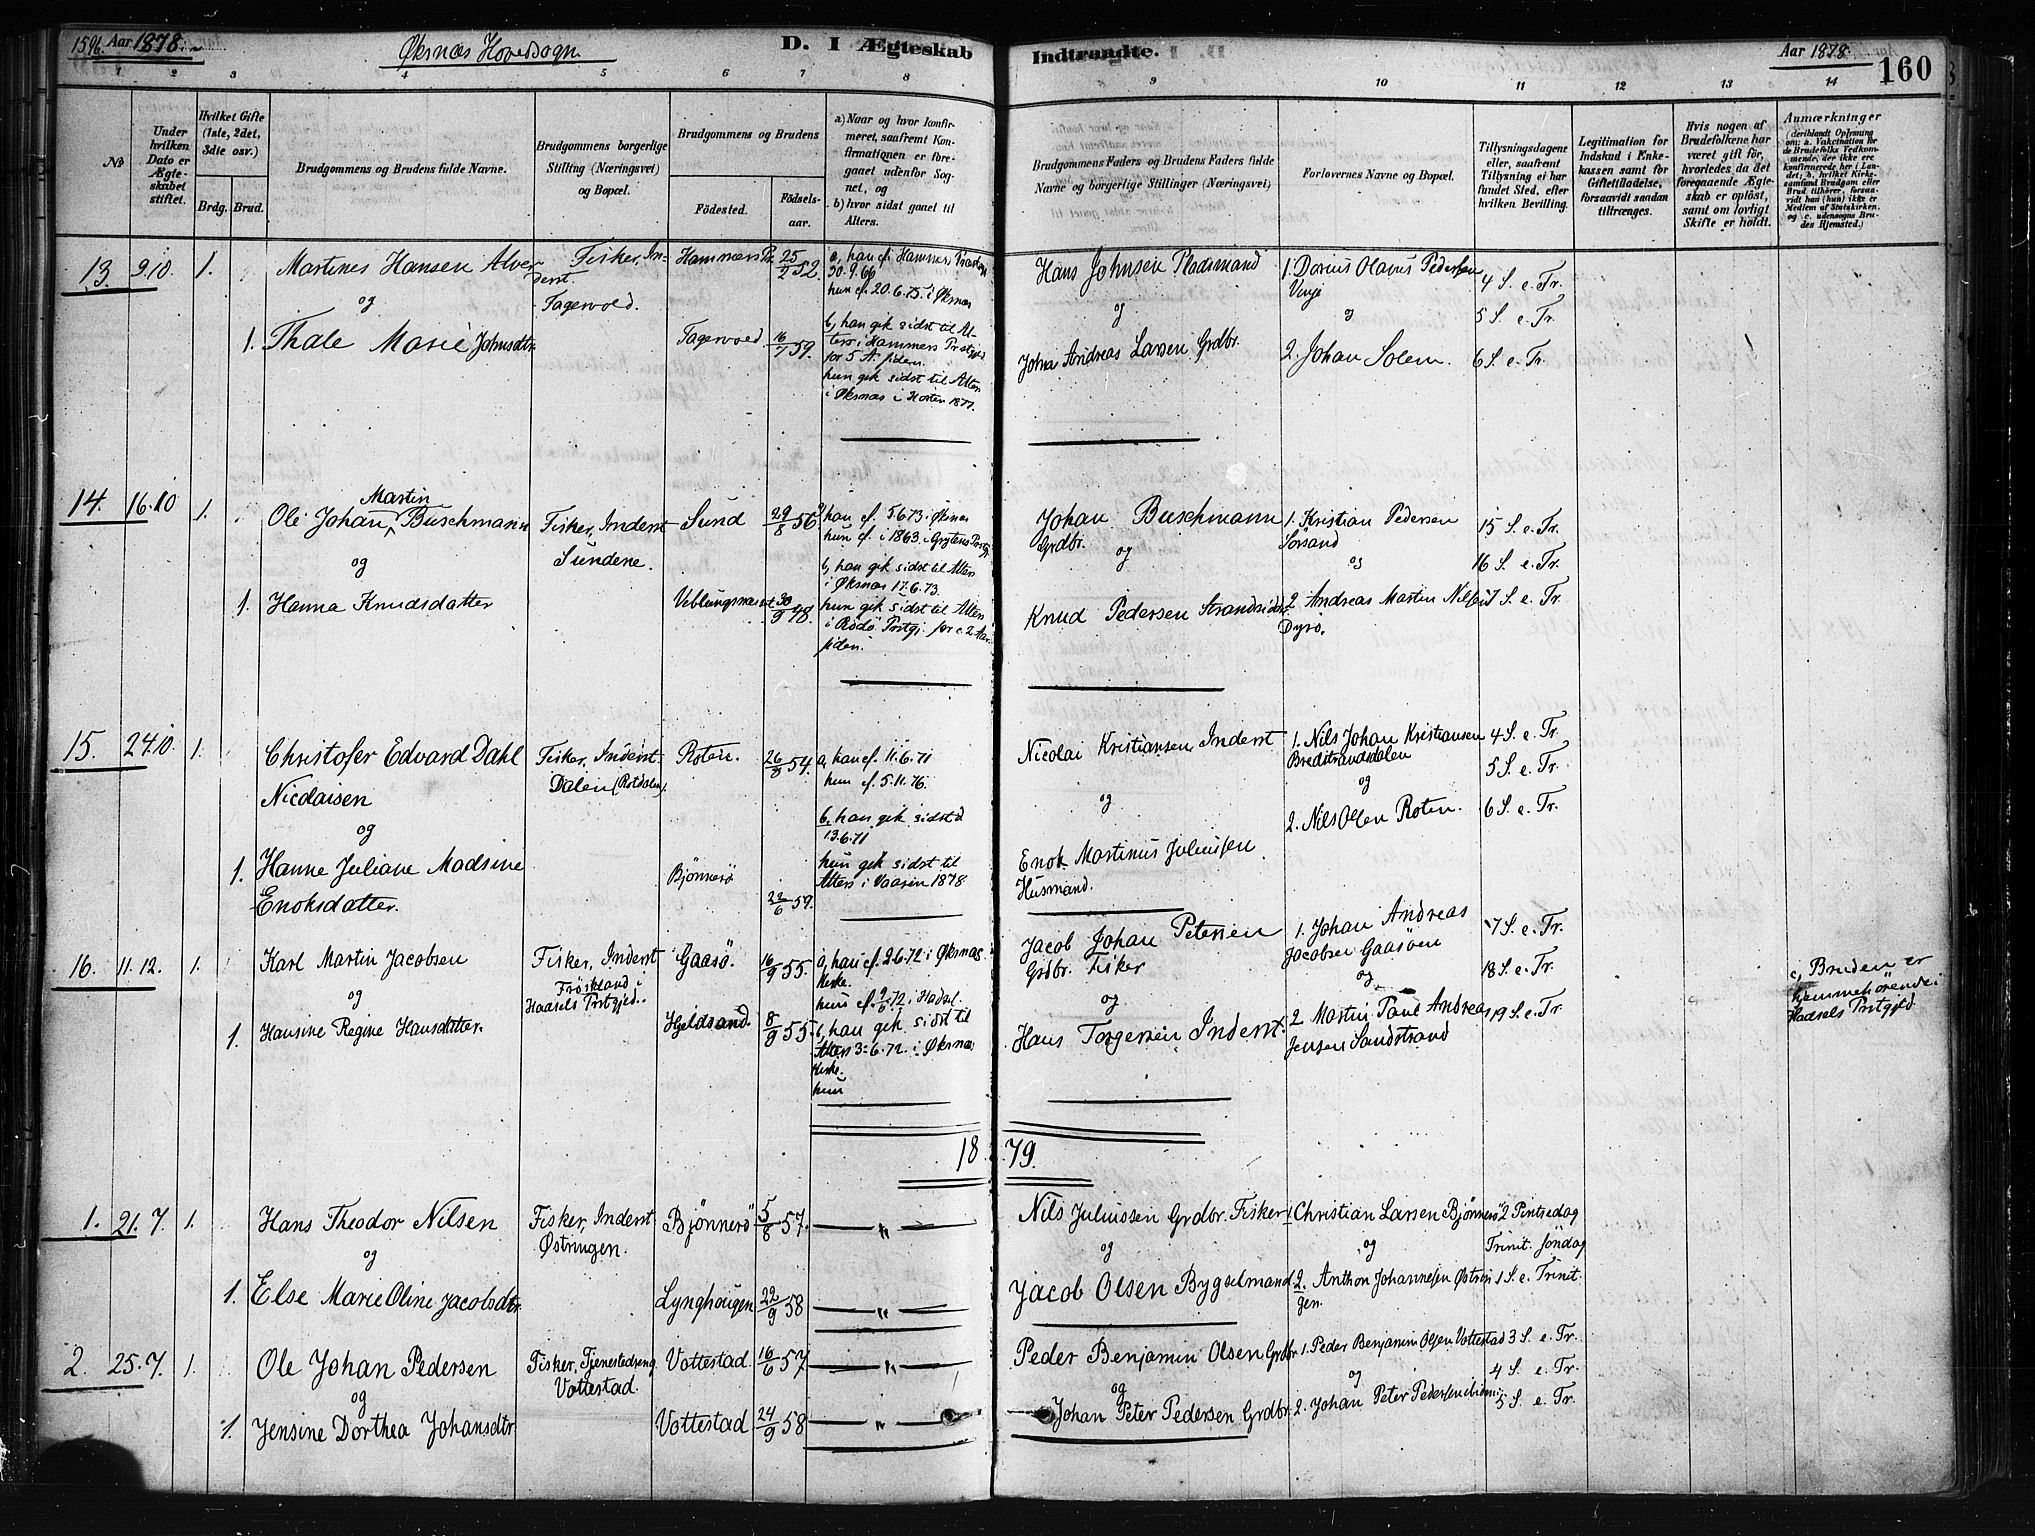 159b. Aar 1878. Øksnæs Hovedsogn D. I Ægteskab Indtraadte. Aar 1878. 160
1 2 3 4 5 6 7 8 9 10 11 12 13 14
No
Under hvilken Dato er Ægteskabet stiftet.
Hvilket Gifte (1ste, 2det, 3die osv.)
Brdg. Brud.
Brudgommens og Brudens fulde Navne.
Brudgommens borgerlige Stilling (Næringsvei) og Bopæl.
Brudgommens og Brudens
Fødested. Fødselsaar.
a) Naar og hvor konfirmeret, saafremt Konfirmationen er foregaaet udenfor Sognet, og
b) hvor sidst gaaet til Alters.
Brudgommens Faders og Brudens Faders fulde Navne og borgerlige Stillinger (Næringsvei)
Forlovernes Navne og Bopæl.
Tillysningsdagene eller, saafremt Tillysning ei har fundet Sted, efter hvilken Bevilling.
Legitimation for Indskud i Enkekassen samt for Giftetilladelse, forsaavidt saadan tiltrænges.
Hvis nogen af Brudefolkene har været gift før, hvorledes da det foregaaende Ægteskab er opløst, samt om lovligt Skifte er holdt.
Anmærkninger
(deriblandt Oplysning om: a. Vakcination for de Brudefolks Vedkommende, der ikke ere konfirmerede her i Landet; b. hvilket Kirkesamfund Brudgom eller Brud tilhører, forsaavidt han (hun) ikke er Medlem af Statskirken, og c. udensogns Brudes Hjemsted.)
13. 9.10. 1. Martines Hansen Alver
og
1. Thale Marie Johnsdtr.
Fisker, Inderst. Fagervold.
Hammers Pr. 25/2 52.
Fagervold 16/7 59.
a, han cf. Hammers Præstegj.
30.9.66
hun cf. 20.6.75 i Øksnæs
b, han gik sidst til Alters i Hammers Prstgjd
for 5 A. siden.
hun gik sidst til Alters
i Øksnæs i Høsten 1877.
Hans Johnsen Pladsmand
og
John Andreas Larsen Grdbr.
1. Dorius Olavus Pedersen
og
2. Johan Solem
4 S. e. Tr.
5 S. e. Tr.
6 S. e. Tr.
14. 16.10 1. Ole Johan Martin Buschmann
og
1. Hanna Knudsdatter
Fisker, Inderst
Sundene.
Sund 29/8 56
Veblungsnæset 30/9 48.
han cf. 5673 i Øksnæs
hun cf. i 1863. i Grytens Prstgj.
b, han gik sidst til Alters
i Øksnæs 17.6.73.
hun gik sidst til Alters
i Rødø Prstgj. for c. 2 Aar
siden.
Johan Buschmann
Grdbr.
og
Knud Pedersen Strandsidder
1. Kristian Pedersen
Sørsand
og
2. Andreas Martin Nilsen
Dyrø.
15 S. e. Tr.
16 S. e. Tr.
17 S. e. Tr
15. 24.10. 1. Christofer Edvard Dahl
Nicolaisen
og
1. Hanne Juliane Madsine
Enoksdatter.
Fisker, Inderst.
Dalen (Rotdalen).
Roten. 26/8 54.
Bjønnerø 22/6 59.
a, han cf. 11.6.71
hun cf. 5.11.76.
b, han gik sidst d
13.6.71
hun gik sidst til
Alters i Vaaren 1878
Nicolai Kristiansen Inderst
og
Enok Martinus Juliussen
Husmand.
1. Nils Johan Kristiansen
Bredstrandsdalen
og
2. Nils Olsen Roten.
4 S. e. Tr.
5 S. e. Tr.
6 S. e. Tr.
16. 11.12. 1. Karl Martin Jacobsen
og
1. Hansine Regine Hansdatter.
Fisker, Inderst
Frøskland i
Hadsels Prstgjed.
Gaasø. 16/9 55.
Hjeldsand. 8/9 55.
a, han cf. 2.6.72 i Øksnæs
Kirke.
hun cf. 9/6 72 i Hadsel.
b, han gik sidst til
Alters 3-6.72. i Øksnæs
Kirke.
hun
Jacob Johan Petersen
Grdbr. Fisker
og
Hans Torgersen Inderst.
1. Johan Andreas
Jacobsen Gaasøen
og
2. Martin Paul Andreas
Jensen Sandstrand
17 S. e. Tr.
18 S. e. Tr
19 S. e. Tr
c, Bruden er
hjemmehörende i
Hadsels Prstgjld
1879.
1. 21.7. 1. Hans Theodor Nilsen
og
1. Else Marie Oline Jacobsdtr.
Fisker, Inderst
Østringen.
Bjønnerö 5/8 57.
Lynghougen 22/9 58
Nils Juliussen Grdbr. Fisker
og
Jacob Olsen Bygselmand
1. Christian Larsen Bjønnerö
og
2. Anthon Johannesen Østringen.
2 Pintsedag
Trinit. Söndag
1 S. e. Trinit.
2. 25.7. 1. Ole Johan Pedersen
og
1. Jensine Dorthea Johansdtr.
Fisker, Tjenestedreng
Vottestad.
Vottestad. 16/6 57
Vottestad 24/9 58
Peder Benjamin Olsen Grdbr.
og
Johan Peter Pedersen Grdbr.
1. Peder Benjamin Olsen Vottestad
og
2. Johan Peter Pedersen ibidem
3 S. e. Tr.
4 S. e. Tr.
5 S. e. Tr.